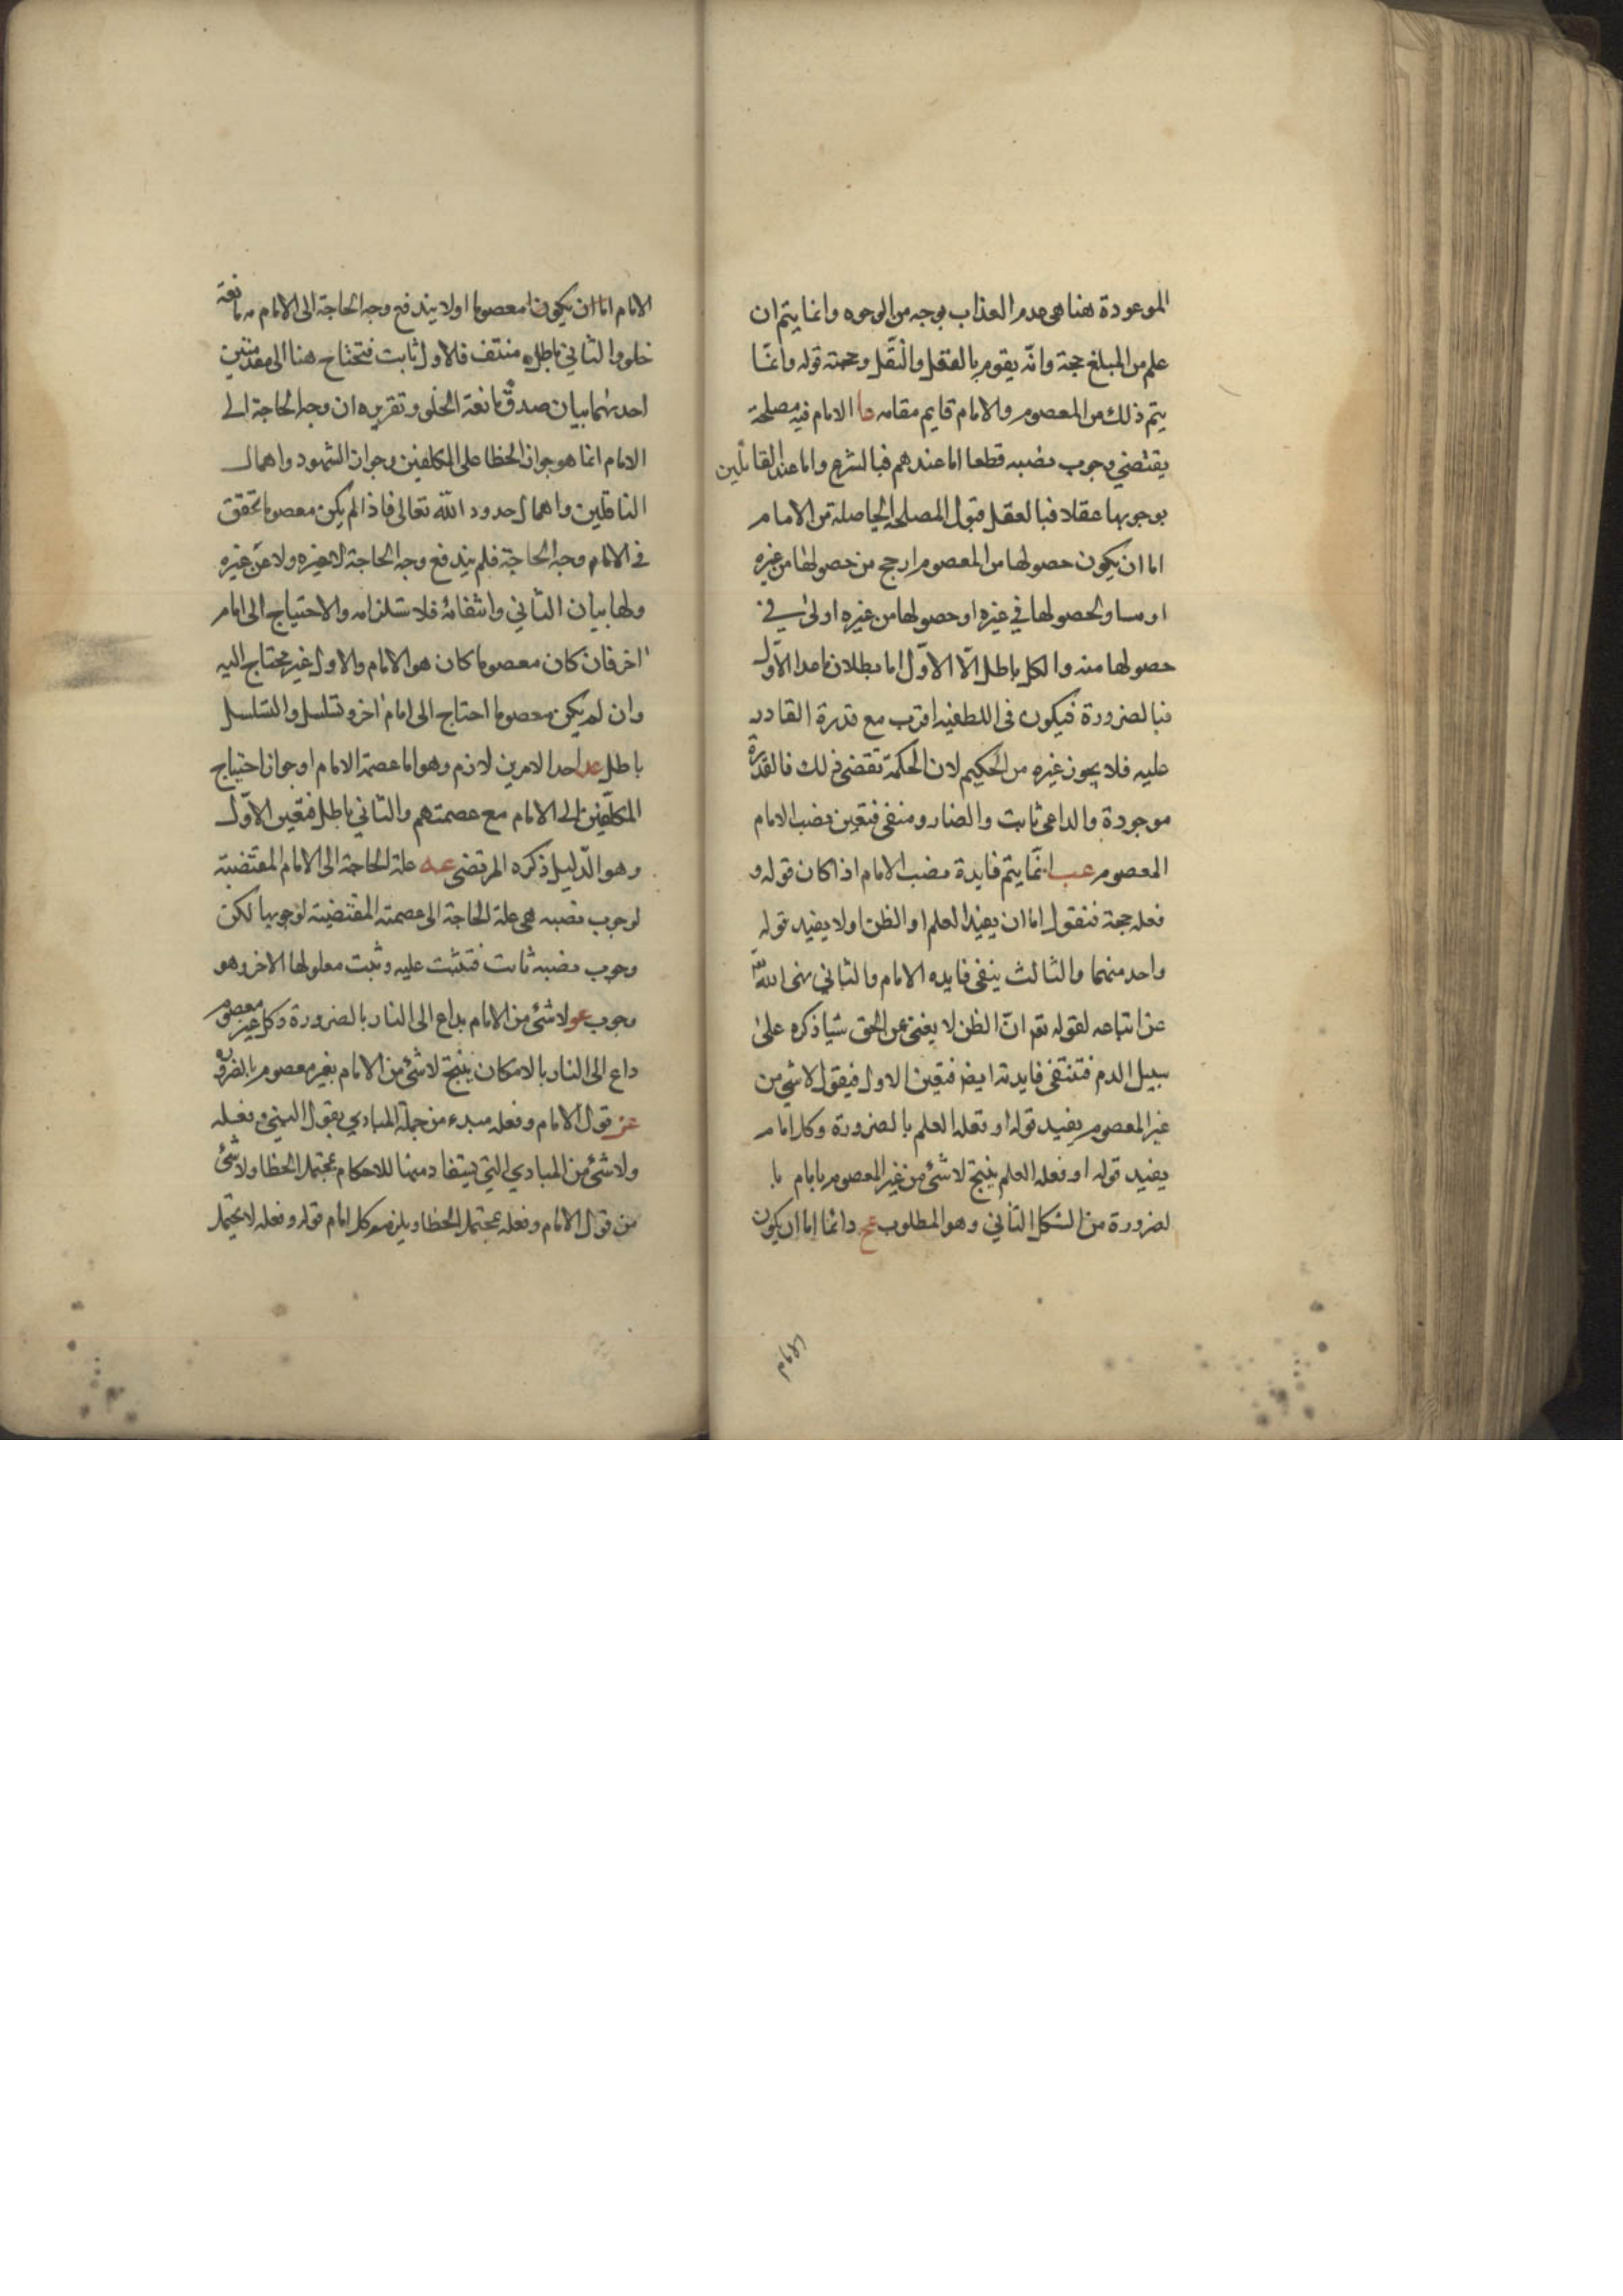 الموعودة هنا هى عدم العذاب بوجه من الوجوه وانما يتم ان
علم من المبلغ حجة وانّه يقوم بالفعل والنّقل وحجته قوله وانّما
يتم ذلك من المعصوم والامام قايم مقامه عا الامام فيه مصلحة
يقتضي وجوب نصبه قطعا اما عندهم فبالشرع واما عند القائلين
بوجوبها عقلا فبالعقل فنقول المصلحة الحاصلة من الامام
اما ان يكون حصولها من المعصوم ارجح من حصولها من غيره
او مساو لحصولها في غيره او حصولها من غيره اولى في
حصولها منه والكل باطل الّا الاوّل اما بطلان ما عدا الاوّل
فبالضرورة فيكون فى اللطفيه اقرب مع قدرة القادر
عليه فلا يجوز غيره من الحكيم لان الحكمة تقضى ذلك فالقدرة
موجودة والداعى ثابت والصارو منفى فتعين نصب الامام
المعصوم عب انّما يتم فايدة نصب الامام اذا كان قوله و
فعله حجة فنقول اما ان يفيد العلم او الظن او لا يفيد قوله
واحد منهما والثالث ينفى فايده الامام والثاني نهى الله
عن اتباعه لقوله تعم انّ الظن لا يغنى عن الحق شيا ذكره على
سبيل الذم فتنتفى فايدته ايض فتعين الاول فيقول لا شي من
غير المعصوم يفيد قوله او فعله العلم بالضرورة وكل امام
يفيد قوله او فعله العلم ينتج لا شئ من غير المعصوم بامام با
لضرورة من الشكل الثاني وهو المطلوب عج دائما اما ان يكون
الامام
الامام اما ان يكون معصوما او لا يندفع وجه الحاجة الى الامام مانعة
خلو والثاني باطل منتف فالاول ثابت فتحتاج هنا الى مقدمتين
احدىهما بيان صدق مانعة الخلو وتقريره ان وجه الحاجة الى
الامام انما هو جواز الخطا على المكلفين وجواز الشهود واهمال
الناقلين واهمال حدود الله تعالى فاذا لم يكن معصوما تحقق
فى الامام وجه الحاجة فلم يندفع وجه الحاجة لا عنه ولا عن غيره
وثانيها بيان الثاني وانتفائه فلاستلزامه والاحتياج الى امام
اخر فان كان معصوما كان هو الامام والاول غير محتاج اليه
وان لم يكن معصوما احتاج الى امام اخر وتسلسل والتسلسل
باطل عد احد الامرين لازم وهو اما عصمة الامام او جواز احتياج
المكلّفين الى الامام مع عصمتهم والثاني باطل فتعين الاوّل
وهو الدّليل ذكره المرتضى عه علة الحاجة الى الامام المقتضية
لوجوب نصبه هى علة الحاجة الى عصمته المقتضية لوجوبها لكن
وجوب نصبه ثابت فتثبت عليه وثبت معلولها الاخر وهو
وجوب عو لا شئ من الامام بداع الى النار بالضرورة وكل غير معصوم
داع الى النار بالامكان ينتج لا شئ من الامام بغير معصوم بالضرورة
عز قول الامام وفعله مبدء من جملة المبادي بقول النبى وفعله
ولا شئ من المبادي التي يستفاد منها للاحكام بمحتمل الخطا ولا شئ
من قول الامام وفعله بمحتمل الخطا ويلزمه كل امام قوله وفعله لا يحتمل